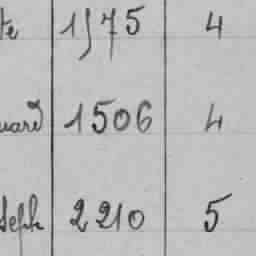 te 1575 4
uard 1506 4
seph 2210 5